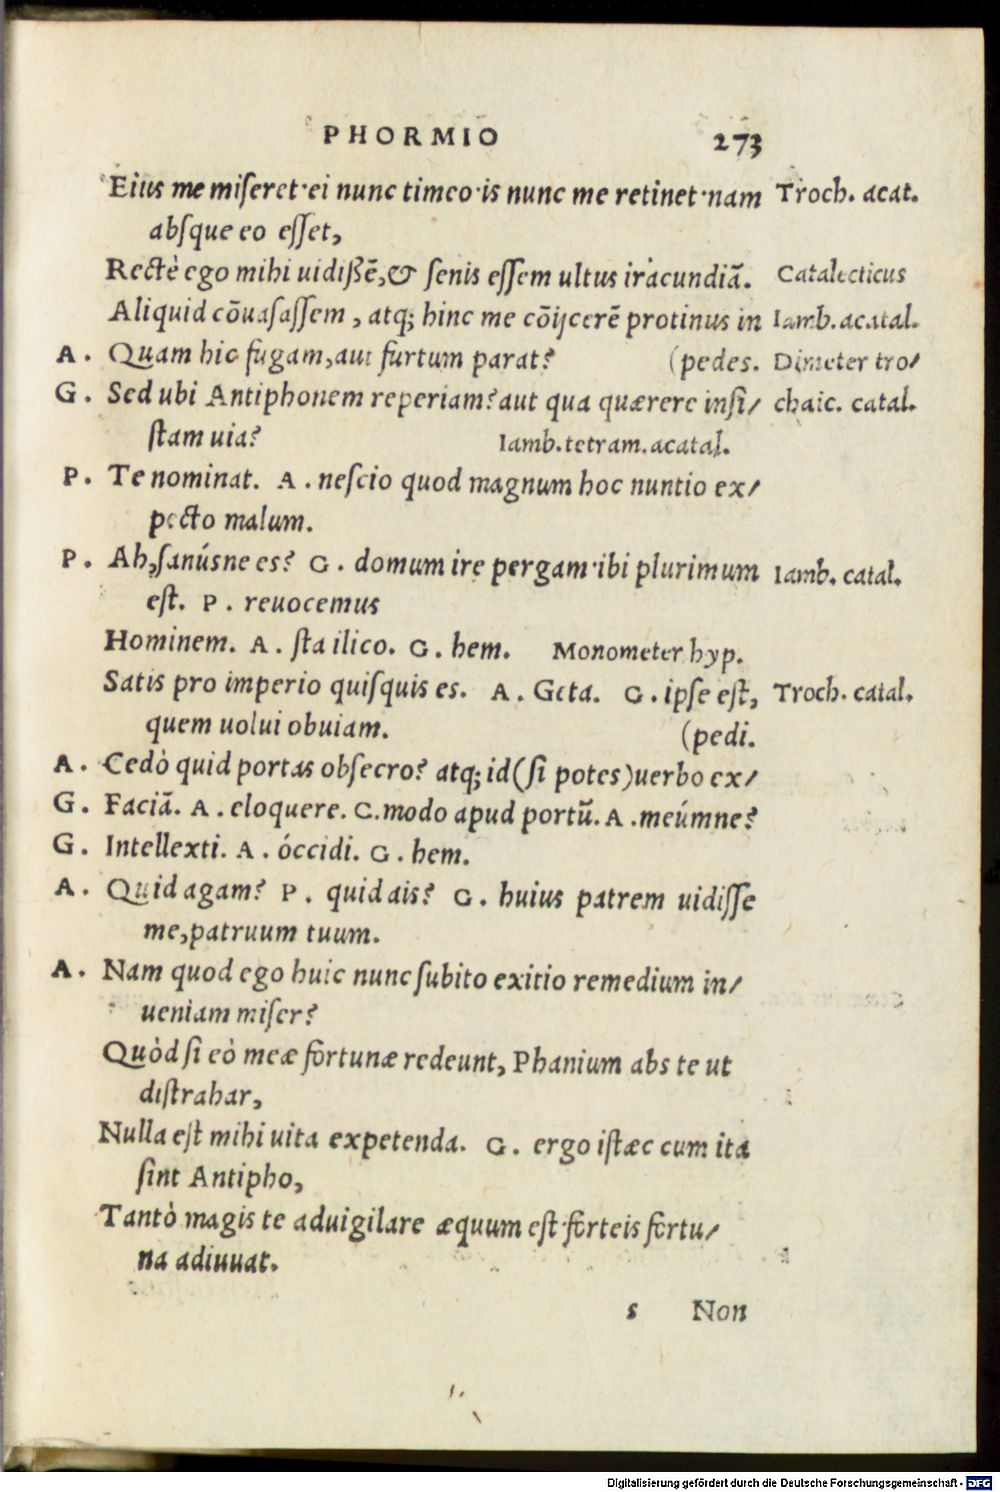 PHORMIO 273
Eius me miſeret·ei nunc timeo·is nunc me retinet·nam Troch. acat.
abſque eo eſſet,
Rectè ego mihi uidißẽ,& ſenis eſſem ultus iracundiã. Catalecticus
Aliquid cõuaſaſſem, atq; hinc me cõijcerẽ protinus in Iamb. acatal.
A. Quam hic fugam,aut furtum parat? (pedes. Dimeter tro/
G. Sed ubi Antiphonem reperiam?aut qua quærere inſi/ chaic. catal.
ſtam uia? Iamb.tetram.acatal.
P. Te nominat. A. neſcio quod magnum hoc nuntio ex/
pecto malum.
P. Ah,ſanúsne es? G. domum ire pergam·ibi plurimum Iamb. catal.
eſt. P. reuocemus
Hominem. A. ſta ilico. G. hem. Monometer hyp.
Satis pro imperio quiſquis es. A. Geta. G. ipſe eſt, Troch. catal.
quem uolui obuiam. (pedi.
A. Cedò quid portas obſecro? atq; id(ſi potes)uerbo ex/
G. Faciã. A. eloquere. G.modo apud portũ. A.meúmne?
G. Intellexti. A. óccidi. G. hem.
A. Quid agam? P. quid ais? G. huius patrem uidiſſe
me,patruum tuum.
A. Nam quod ego huic nunc ſubito exitio remedium in/
ueniam miſer?
Quòd ſi eò meæ fortunæ redeunt, Phanium abs te ut
diſtrahar,
Nulla eſt mihi uita expetenda. G. ergo iſtæc cum ita
ſint Antipho,
Tantò magis te aduigilare æquum eſt·forteis fortu/
na adiuuat.
s Non
Digitalisierung gefördert durch die Deutsche Forschungsgemeinschaft - DFG